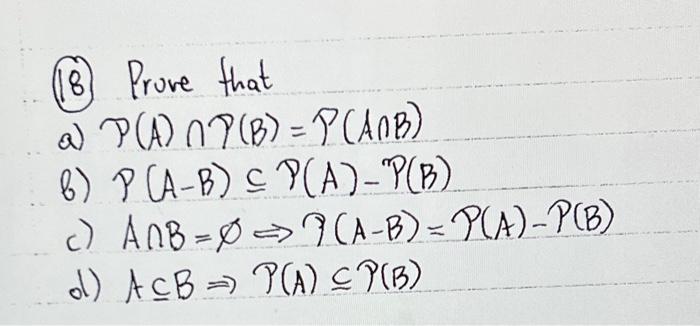 (18) Prove that
a) P(A) ∩ P(B) = P(A∩B)
b) P(A-B) ⊆ P(A) - P(B)
c) A∩B = ∅ ⟹ P(A-B) = P(A) - P(B)
d) A ⊆ B ⟹ P(A) ⊆ P(B)